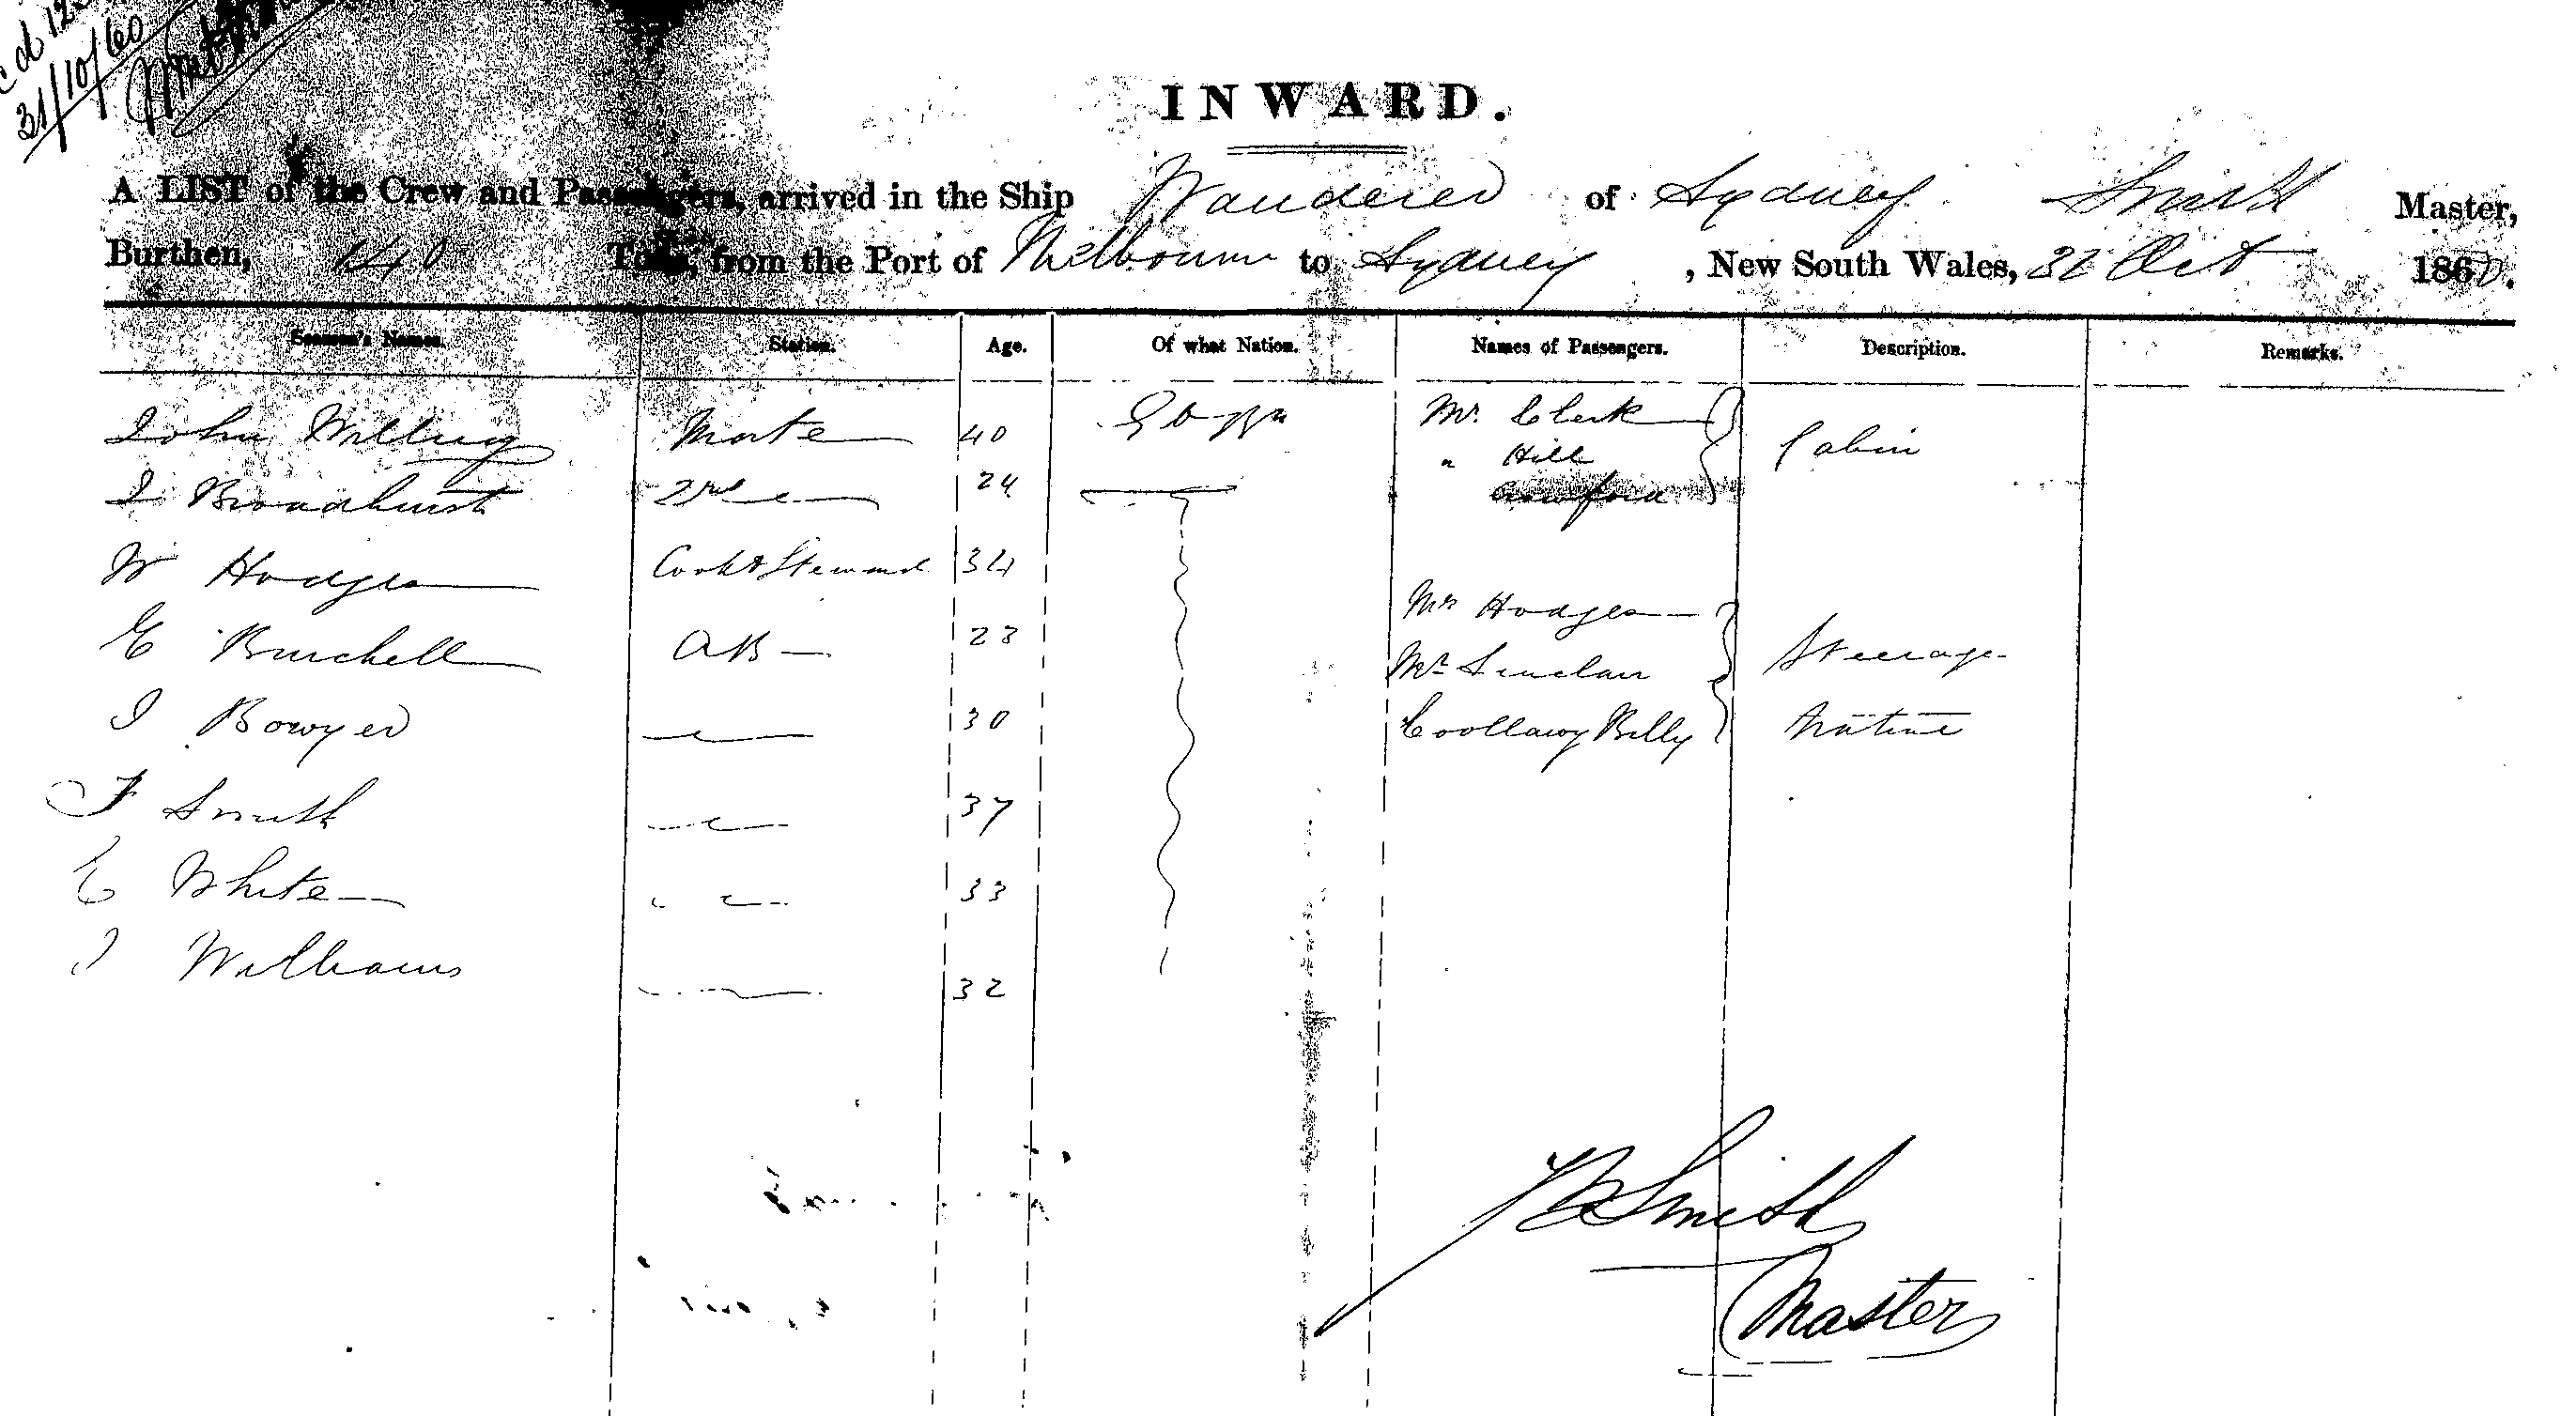 31/10/60
INWARD.
A LIST of the Crew and Passengers, arrived in the Ship Wanderer of Sydney Smith Master,
Burthen, 140 Tons, from the Port of Melbourne to Sydney, New South Wales, Oct 1860.
Seamen's Names. Station. Age. Of what Nation. Names of Passengers. Description. Remarks.
John Mate 40 Mr. Clerk Cabin
J Broadhurst 2nd 24 " Hill
Crawford
W Hodges Cook & Steward 34
Mrs Hodges
E Burchell AB 23 Steerage
Mr Sinclair
J Bowyer 30 Coollawy Billy Native
F Smith 37
E White 33
J Williams 32
Smith
Master